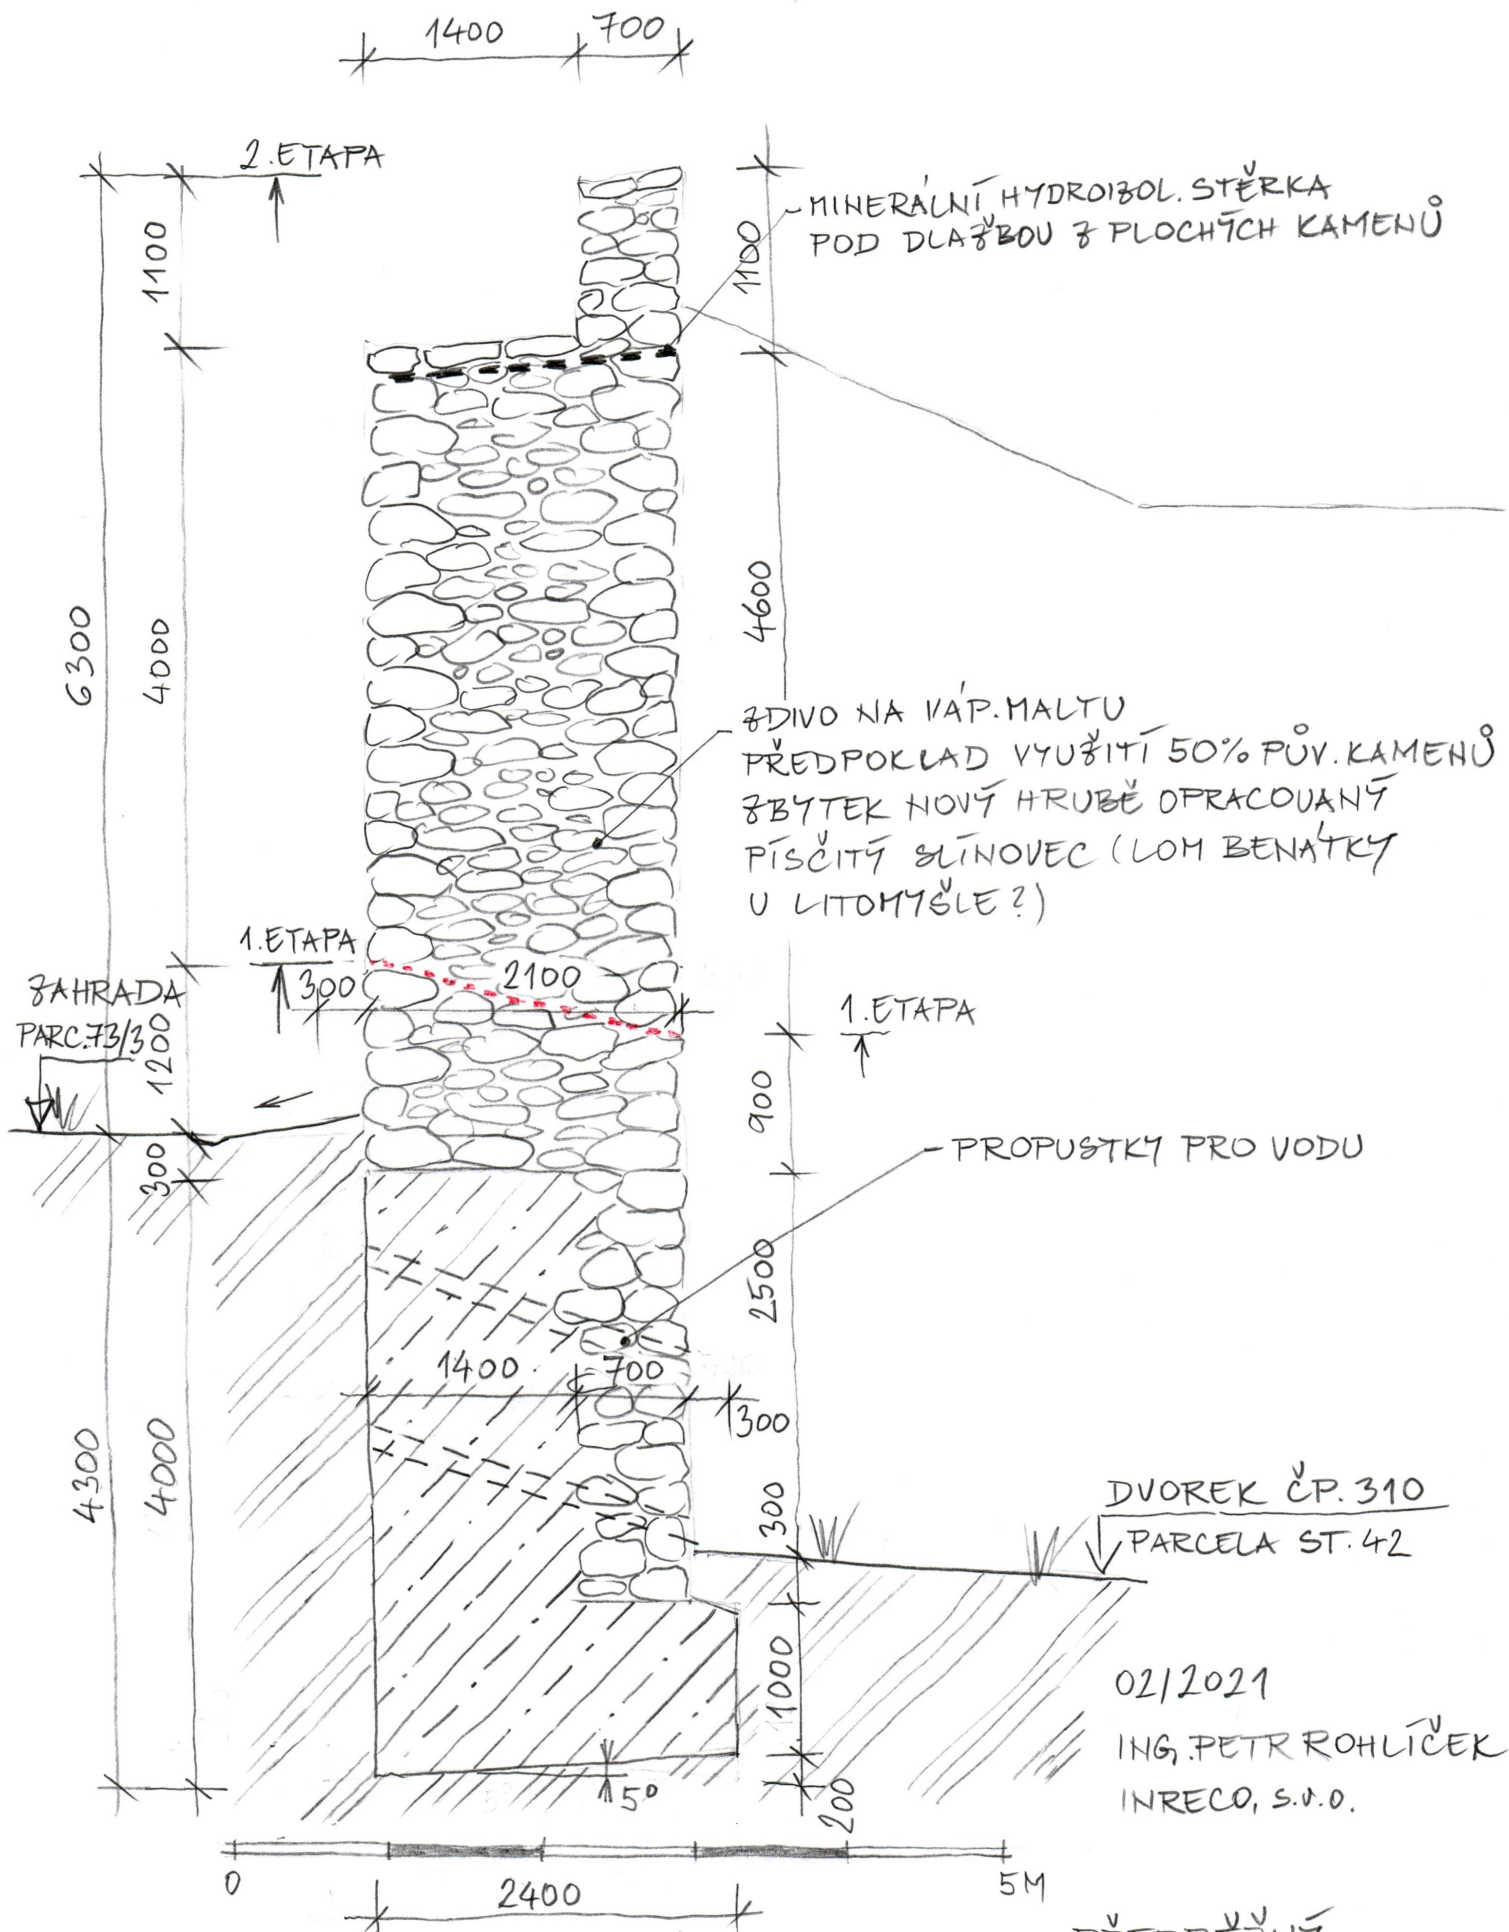 1400
700
2. ETAPA
MINERÁLNÍ HYDROIZOL. STĚRKA
POD DLAŽBOU Z PLOCHÝCH KAMENŮ
1100
1100
6300
4000
4600
ZDIVO NA VÁP. MALTU
PŘEDPOKLAD VYUŽITÍ 50% PŮV. KAMENŮ
ZBYTEK NOVÝ HRUBĚ OPRACOVANÝ
PÍSČITÝ SLÍNOVEC (LOM BENÁTKY
U LITOMYŠLE?)
1. ETAPA
300
2100
ZAHRADA
PARC. 73/3
1200
1. ETAPA
900
300
PROPUSTKY PRO VODU
2500
1400
700
300
4300
4000
300
DVOREK ČP. 310
PARCELA ST. 42
1000
5°
200
02/2021
ING. PETR ROHLÍČEK
INRECO, s.r.o.
0
5M
2400